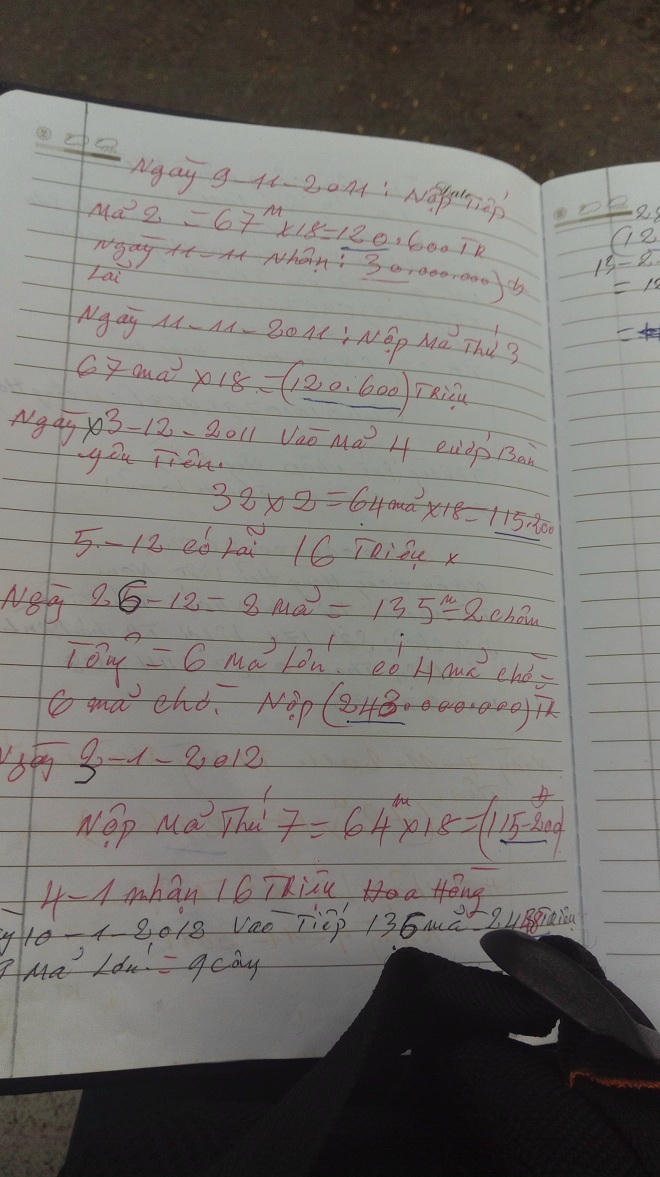 Ngày 9-11-2011: Nộp Tiếp
Mả 2 = 67 M x18=120.600 TR
Ngày 11-11 Nhận: 30.000.000) đ
Lãi
Ngày 11-11-2011: Nộp Mả Thứ 3
67 mả x18=(120.600) Triệu
Ngày 3-12-2011 Vào Mả 4
yên Tiên.
32x2=64 mả x18=115.200
5-12 có Lãi 16 Triệu x
Ngày 26-12= 2 Mả = 135 m = 2 chân
Tổng = 6 Mả Lớn. có 4 mả chó =
6 mả chó. Nộp (243.000.000) TR
Ngày 3-1-2012
Nộp Mả Thứ 7=64 m x18=(115-200) đ
4-1 nhận 16 Triệu Hoa Hồng
10-1-2012 Vào Tiếp 136 mả =
Mả Lớn = 9 cây
(12
13-2
= 12